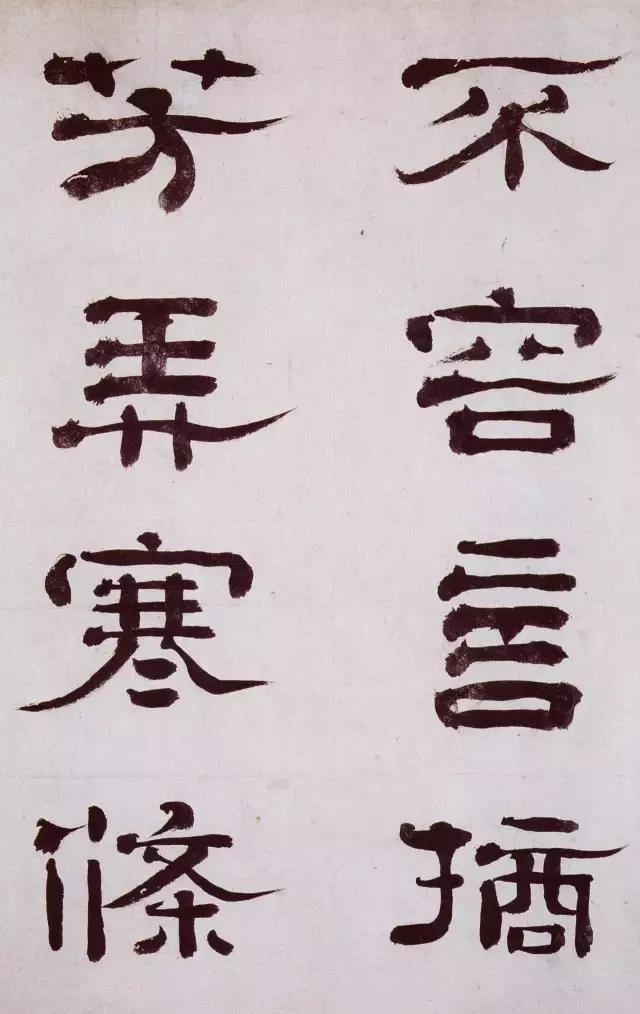 不容言摘
芳弄寒條